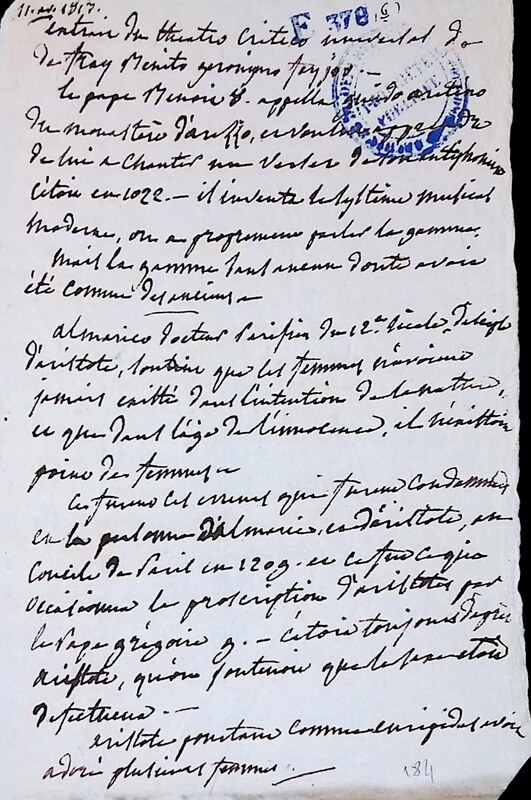 11. av. 1817.
F 378 (6)
extrait du theatro critico universal de
de fray Benito geronimo feyjoo. —
le pape Benoit 8. appella guido aretino
du monastère d'arezzo, et voulut apprendre
de lui a chanter un verset de son antiphonaire
c'étoit en 1022. — il inventa le systême musical
moderne, ou a proprement parler la gamme.
mais la gamme sans aucun doute avoit
été connue des anciens
almarico docteur Parisien du 12e siècle, disciple
d'aristote, soutint que les femmes n'avoient
jamais existé dans l'intention de la nature,
et que dans l'âge de l'innocence, il n'existoit
point de femmes
ces furent ces erreurs qui furent condamnées
en la personne d'almaric, et d'aristote, au
Concile de Paris en 1209. et ce fut ce qui
occasionna la proscription d'aristote par
le Pape grégoire 9. — c'étoit toujours d'après
aristote, qu'on soutenoit que le sexe étoit
défectueux —
aristote pourtant comme euripides avoit
adoré plusieurs femmes.
184